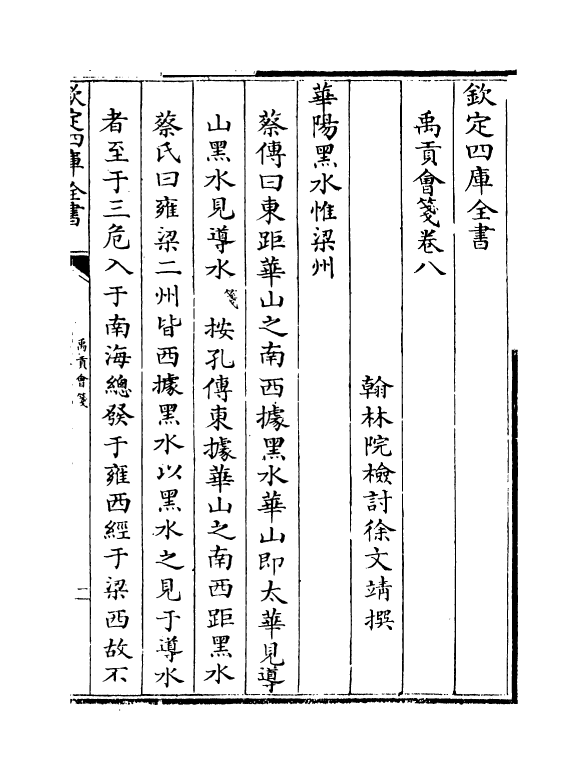 欽定四庫全書
禹貢會箋卷八
翰林院檢討徐文靖撰
華陽黑水惟梁州
蔡傳曰東距華山之南西據黑水華山即太華見導
山黑水見導水 箋 按孔傳東據華山之南西距黑水
蔡氏曰雍梁二州皆西據黑水以黑水之見于導水
者至于三危入于南海總發于雍西經于梁西故不
欽定四庫全書
禹貢會箋
二